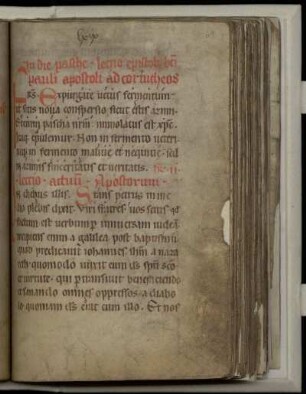 In die pasche · lectio epistole bti
pauli apostoli ad corinthens
Expurgate vetus fermentum
sitis nova conspersio sicut estis azimi
etenim pascha nrm immolatus est xps
itaq epulemur · Non in fermento veteri
neq in fermento malicie et nequitie · sed
in azimis sinceritatis et veritatis ·
lectio · actuum · Apostolorum ·
In diebus illis · Stans petrus in me
dio plebis dixit · Viri fratres · vos scitis qd
factum est verbum p universam iudeā
incipiens enim a galilea post baptismū
quod predicavit iohannes ihm a naza
reth · quomodo unxit eum ds spū sco
et virtute · qui ptransivit benefaciendo
et sanando omnes oppressos a diabo
lo quoniam ds erat cum illo · Et nos